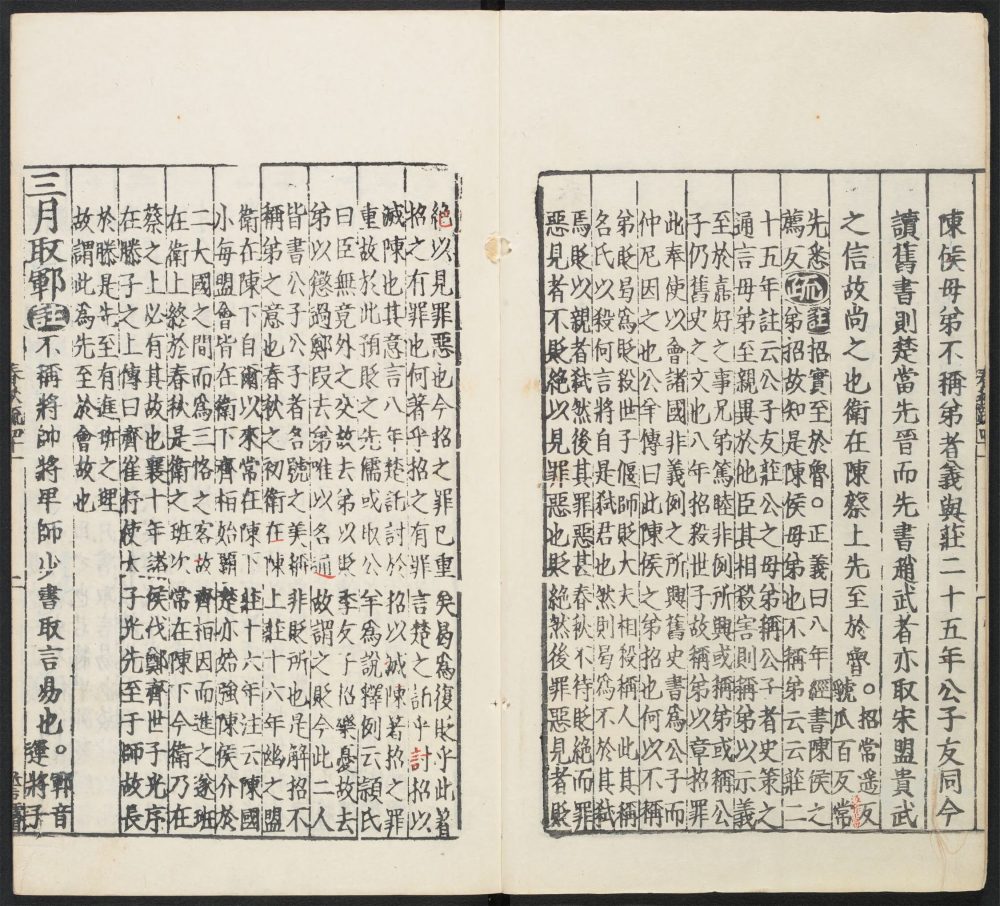 陳侯母弟不稱弟者義與莊二十五年公子友同今
讀舊書則楚當先晉而先書趙武者亦取宋盟貴武
之信故尚之也衛在陳蔡上先至於會。招常遥反
虢瓜百反常
先悉
薦反疏註招實至於魯。正義曰八年經書陳侯之
弟招故知是陳侯母弟也不稱弟云云莊二
十五年註云公子友莊公之母弟稱公子者史策之
通言母弟至親異於他臣其相殺害則稱弟以示義
至於嘉好之事兄弟篤睦非例所興或稱弟或稱公
子仍舊史之文也八年招殺世子故稱弟以章招罪
此奉使以會諸國非義例之所興舊史書爲公子而
仲尼因之也公羊傳曰此陳侯之弟招也何以不稱
弟貶曷爲貶爲殺世子偃師貶大夫相殺稱人此其稱
名氏以殺何言將自是弑君也然則曷爲不於其弑
焉貶以親者弑然後其罪惡甚春秋不待貶絕而罪
惡見者不貶絕以見罪惡也貶絕然後罪惡見者貶
絕以見罪惡也今招之罪已重矣曷爲復貶乎此著
招之有罪也何著乎招之有罪言楚之託乎討招以
滅陳也其意言八年楚託討於招以滅陳著招之罪
重故於此預貶之先儒或取公羊爲說釋例云潁氏
曰臣無竟外之交故去弟以貶季友子招樂憂故去
弟以懲過鄭段去弟唯以名通故謂之貶今此二人
皆書公子公子者名號之美稱非貶所也是解招不
稱弟之意也春秋之初衛在陳上莊十六年幽之盟
衛在陳下自爾以來常在陳下莊十六年注云陳國
小每盟會皆在衛下齊桓始霸楚亦始強陳侯介於
二大國之間而爲三恪之客故齊桓因而進之遂班
在衛上終於春秋是衛之班次常在陳下今衛乃在
蔡之上必有其故也襄十年諸侯伐鄭齊世子光序
在滕子之上傳曰齊崔杼使大子光先至于師故長
於滕是先至有進班之理
故謂此爲先至於會故也
三月取鄆註不稱將帥將卑師少書取言易也。鄆音
運將子